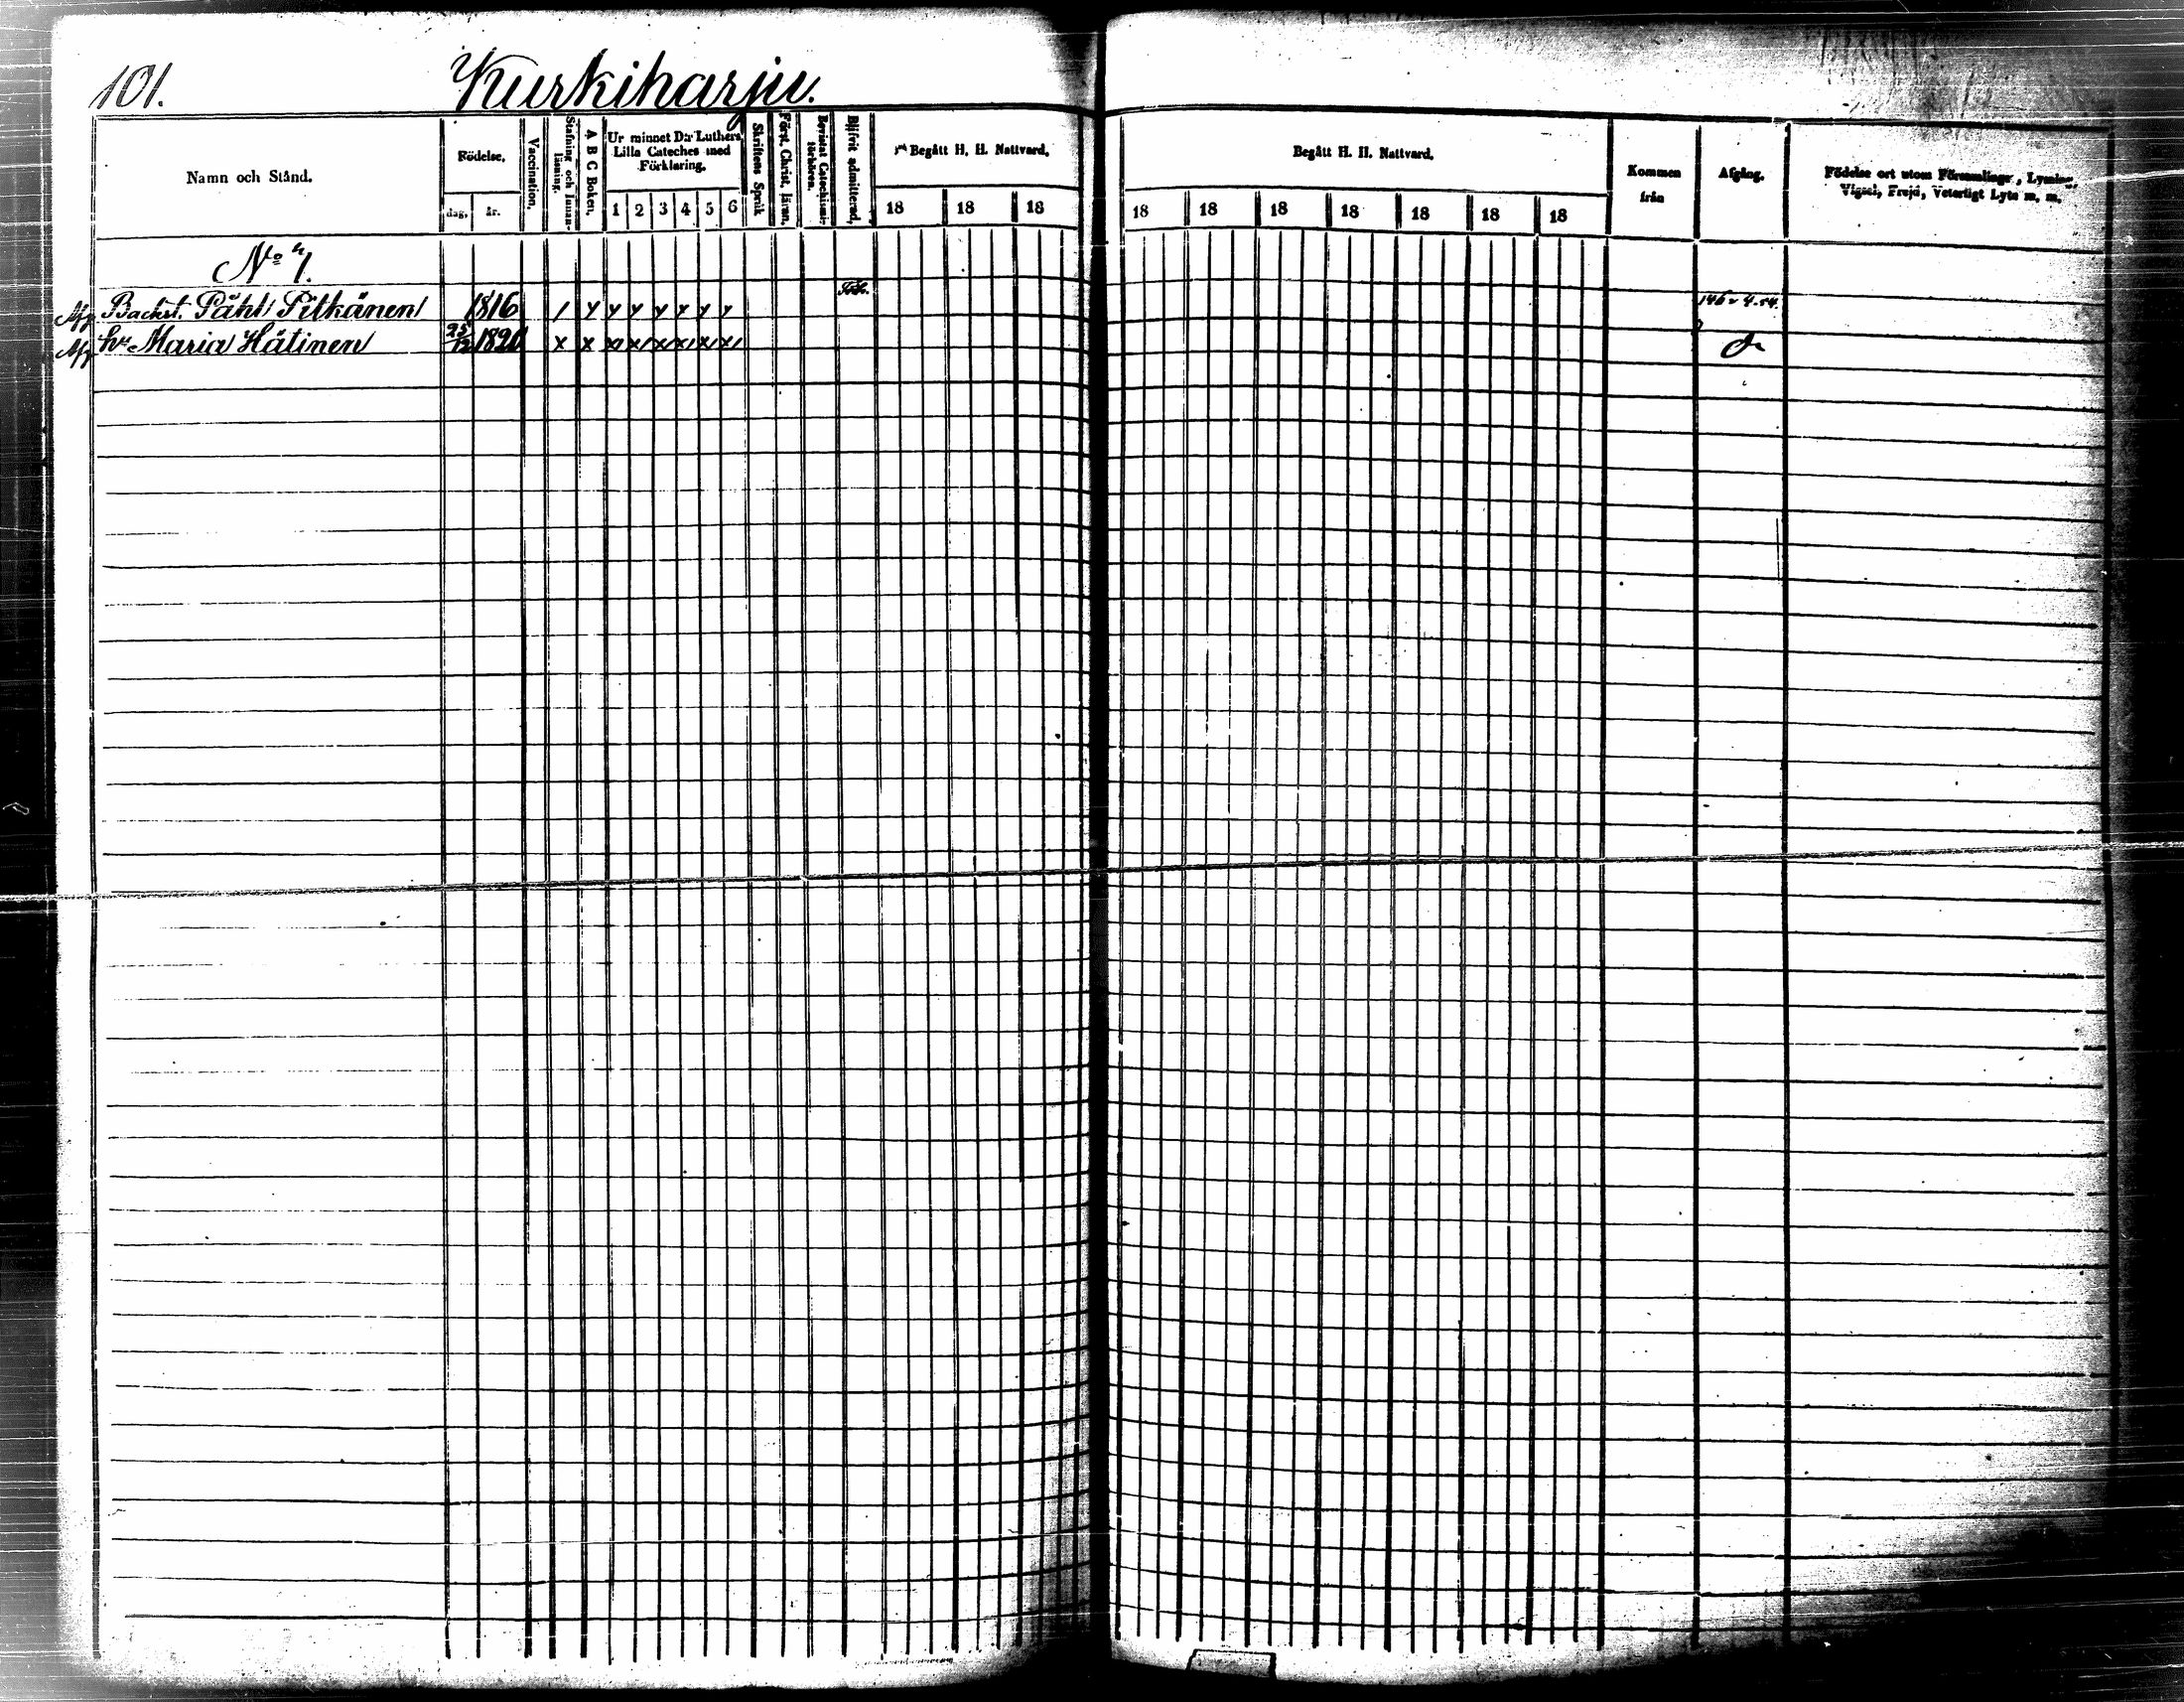 101. Kurkiharju.
Namn och Stånd.
Födelse.
dag. år.
Vaccination.
Stafning och Innan-
läsning.
A B C Boken.
Ur minnet D:r Luthers
Lilla Cateches med
Förklaring.
1 2 3 4 5 6
Skriftens Språk
Först. Christ. läran.
Bevistat Catechismi-
förhören.
Blifvit admitterad.
Begått H. H. Nattvard.
18 18 18
Begått H. H. Nattvard.
18 18 18 18 18 18 18
Kommen
från
Afgång.
Födelse ort utom Församlingen, Lysning,
Vigsel, Frejd, Veterligt Lyte m. m.
No
Afg Backst. Påhl Pitkänen 1816
Afg hu Maria Hätinen 25/12 1820 x x x x x x x x